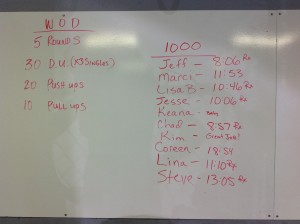 WOD
5 ROUNDS
30 D.U. (x3 Singles)
20 PUSH UPS
10 PULL UPS
1000
Jeff - 8:06 Rx
Marci - 11:53
Lisa B - 10:46 Rx
Jesse - 10:06 Rx
Keana -
Chad - 8:57 Rx
Kim - Great Job!
Coreen - 18:54
Lina - 11:10 Rx
Steve - 13:05 Rx